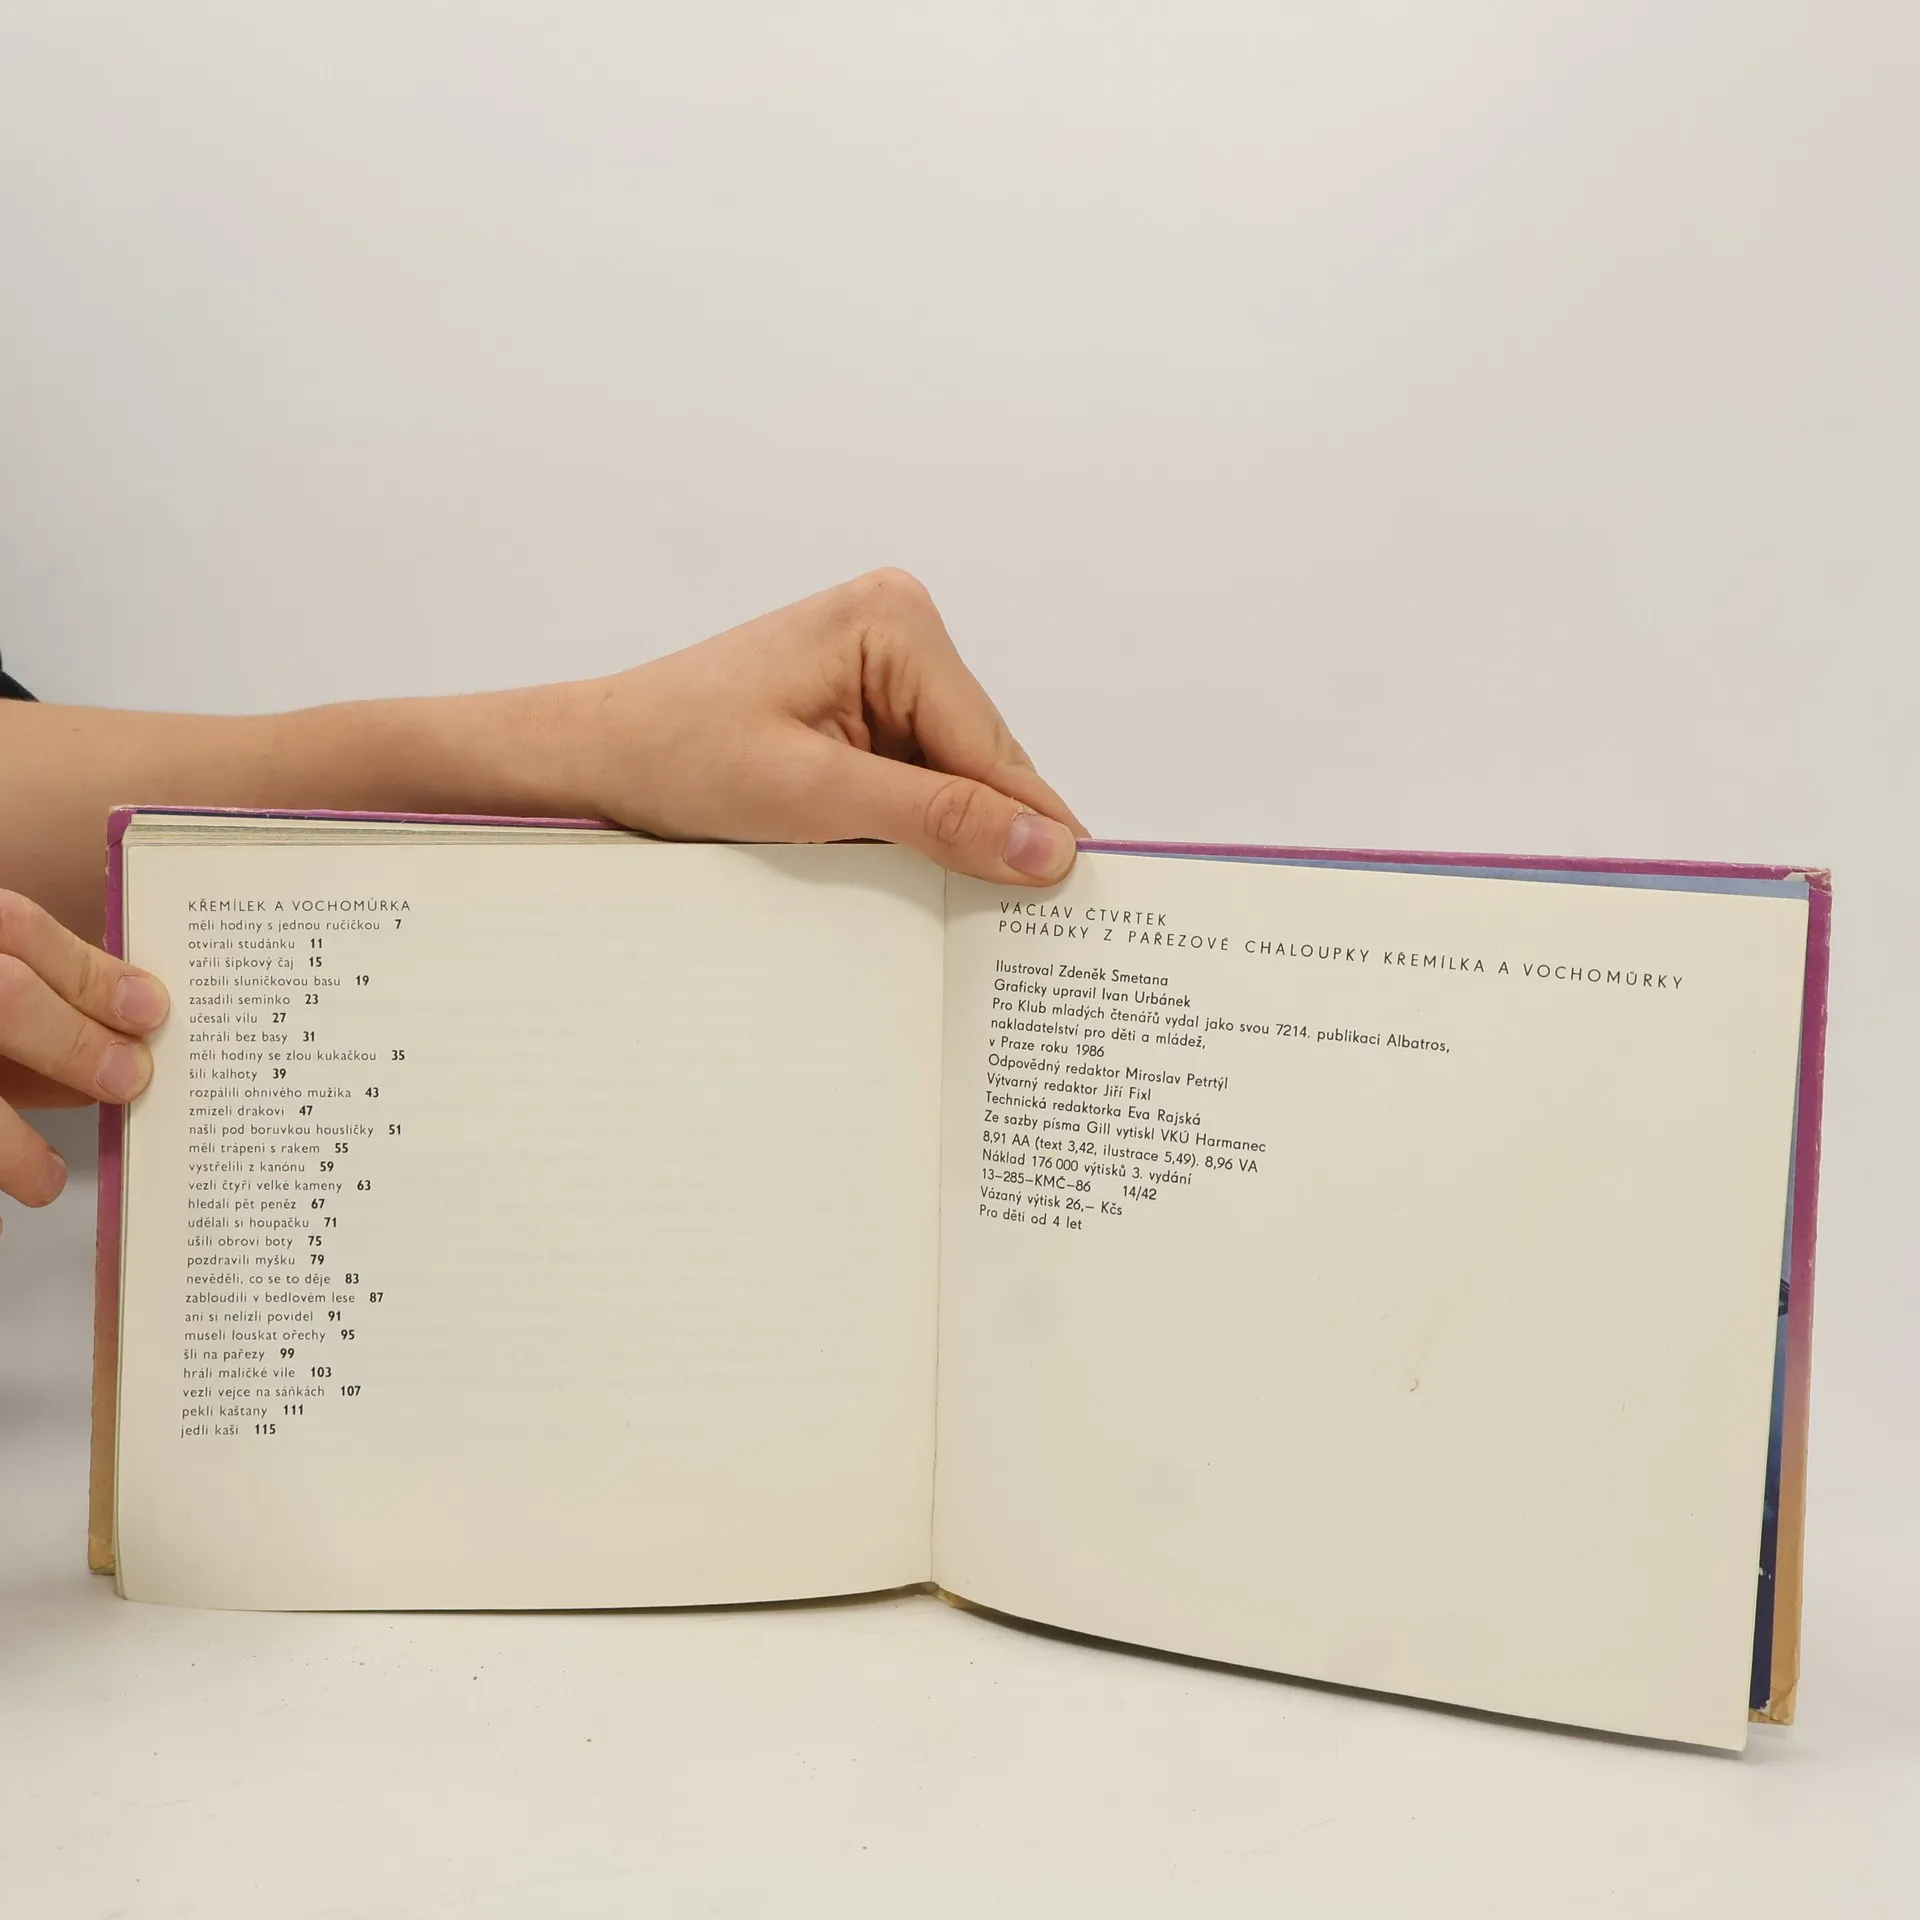 KŘEMÍLEK A VOCHOMŮRKA
měli hodiny s jednou ručičkou 7
otvírali studánku 11
vařili šípkový čaj 15
rozbili sluníčkovou basu 19
zasadili semínko 23
učesali vílu 27
zahráli bez basy 31
měli hodiny se zlou kukačkou 35
šili kalhoty 39
rozpálili ohnivého mužíka 43
zmizeli drakovi 47
našli pod borůvkou housličky 51
měli trápení s rakem 55
vystřelili z kanónu 59
vezli čtyři velké kameny 63
hledali pět peněz 67
udělali si houpačku 71
ušili obrovi boty 75
pozdravili myšku 79
nevěděli, co se to děje 83
zabloudili v bedlovém lese 87
ani si nelízli povidel 91
museli louskat ořechy 95
šli na pařezy 99
hráli maličké víle 103
vezli vejce na sáňkách 107
pekli kaštany 111
jedli kaši 115
VÁCLAV ČTVRTEK
POHÁDKY Z PAŘEZOVÉ CHALOUPKY KŘEMÍLKA A VOCHOMŮRKY
Ilustroval Zdeněk Smetana
Graficky upravil Ivan Urbánek
Pro Klub mladých čtenářů vydal jako svou 7214. publikaci Albatros,
nakladatelství pro děti a mládež,
v Praze roku 1986
Odpovědný redaktor Miroslav Petrtýl
Výtvarný redaktor Jiří Fixl
Technická redaktorka Eva Rajská
Ze sazby písma Gill vytiskl VKÚ Harmanec
8,91 AA (text 3,42, ilustrace 5,49). 8,96 VA
Náklad 176 000 výtisků 3. vydání
13–285–KMČ–86 14/42
Vázaný výtisk 26,– Kčs
Pro děti od 4 let